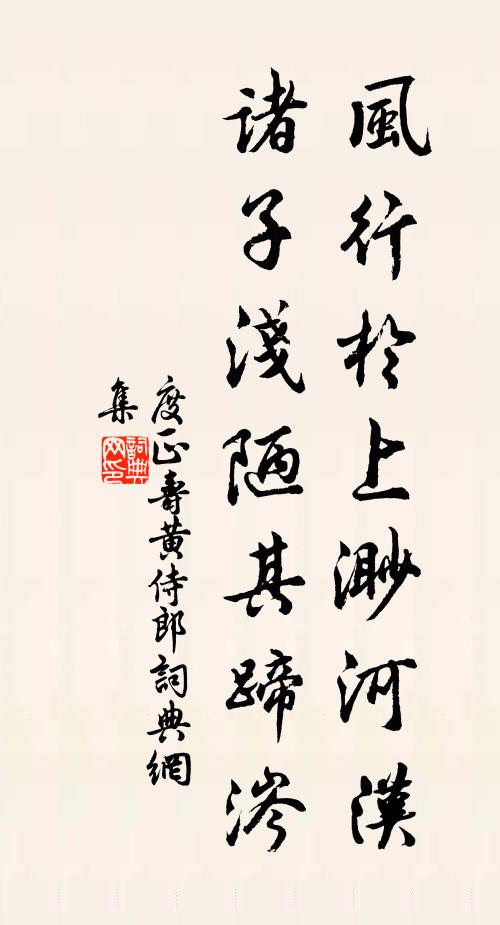 風行於上渺河漢
諸子淺陋其蹄涔
度正壽黃侍郎詞典網
集
詞典
网印